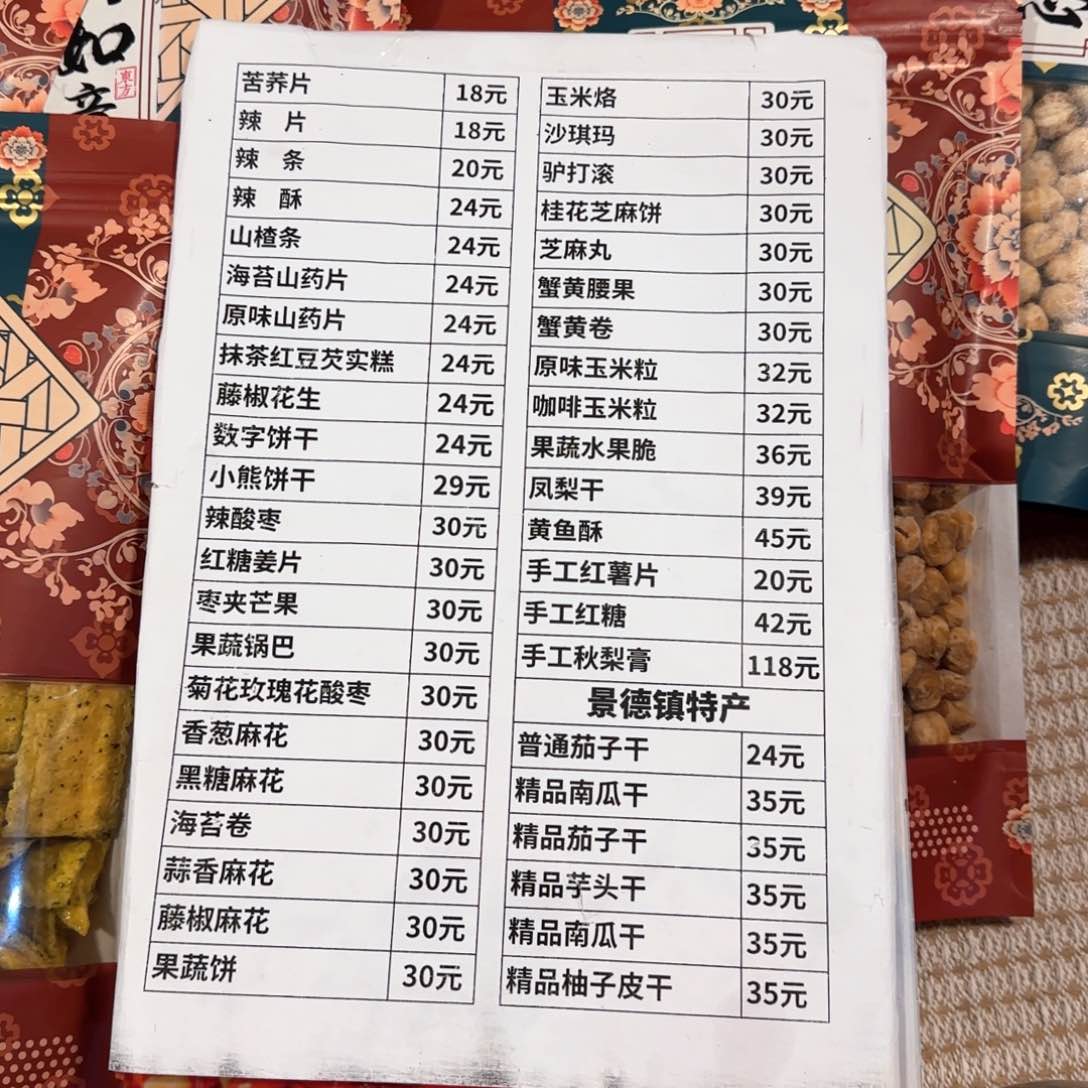 如意
東方
苦荞片 18元
辣 片 18元
辣 条 20元
辣 酥 24元
山楂条 24元
海苔山药片 24元
原味山药片 24元
抹茶红豆芡实糕 24元
藤椒花生 24元
数字饼干 24元
小熊饼干 29元
辣酸枣 30元
红糖姜片 30元
枣夹芒果 30元
果蔬锅巴 30元
菊花玫瑰花酸枣 30元
香葱麻花 30元
黑糖麻花 30元
海苔卷 30元
蒜香麻花 30元
藤椒麻花 30元
果蔬饼 30元
玉米烙 30元
沙琪玛 30元
驴打滚 30元
桂花芝麻饼 30元
芝麻丸 30元
蟹黄腰果 30元
蟹黄卷 30元
原味玉米粒 32元
咖啡玉米粒 32元
果蔬水果脆 36元
凤梨干 39元
黄鱼酥 45元
手工红薯片 20元
手工红糖 42元
手工秋梨膏 118元
景德镇特产
普通茄子干 24元
精品南瓜干 35元
精品茄子干 35元
精品芋头干 35元
精品南瓜干 35元
精品柚子皮干 35元